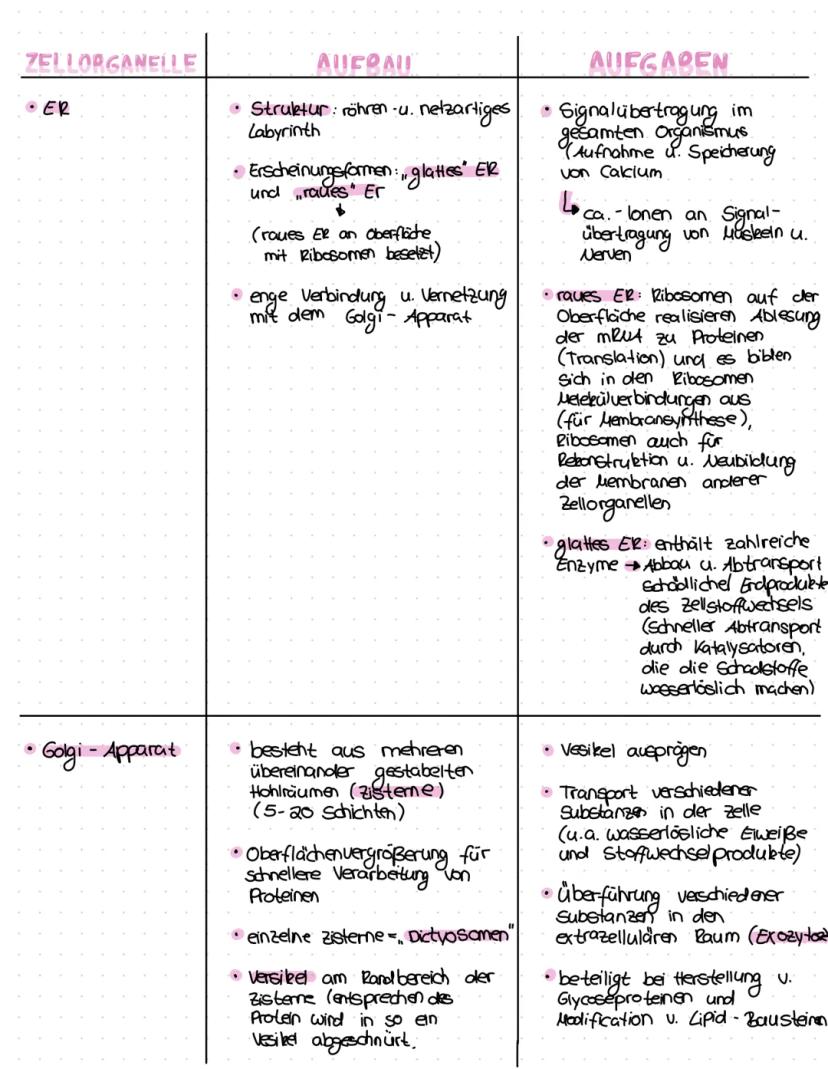 ZELLORGANELLE
AUFBAU
AUFGABEN
• ER
• Struktur: röhren-u. netzartiges
Labyrinth
• Erscheinungsformen: „glattes" ER
und „raues" Er
(raues ER an Oberfläche
mit Ribosomen besetzt)
• enge Verbindung u. Vernetzung
mit dem Golgi-Apparat
• Signalübertragung im
gesamten Organismus
(Aufnahme u. Speicherung
von Calcium
↳ ca.-Ionen an Signal-
übertragung von Muskeln u.
Nerven
• raues ER: Ribosomen auf der
Oberfläche realisieren Ablesung
der mRNA zu Proteinen
(Translation) und es bilden
sich in den Ribosomen
Molekülverbindungen aus
(für Membransynthese),
Ribosomen auch für
Rekonstruktion u. Neubildung
der Membranen anderer
Zellorganellen
• glattes ER: enthält zahlreiche
Enzyme → Abbau u. Abtransport
schädlicher Endprodukte
des Zellstoffwechsels
(schneller Abtransport
durch Katalysatoren,
die die Schadstoffe
wasserlöslich machen)
• Golgi-Apparat
• besteht aus mehreren
übereinander gestabelten
Hohlräumen (Zisterne)
(5-20 Schichten)
• Oberflächenvergrößerung für
schnellere Verarbeitung von
Proteinen
• einzelne Zisterne = „Dictyosomen"
• Versikel am Randbereich der
Zisterne (entsprechendes
Protein wird in so ein
Vesikel abgeschnürt.
• Vesikel ausprägen
• Transport verschiedener
Substanzen in der Zelle
(u.a. wasserlösliche Eiweiße
und Stoffwechselprodukte)
• Überführung verschiedener
Substanzen in den
extrazellulären Raum (Exozytoz
• beteiligt bei Herstellung v.
Glycoseproteinen und
Modification v. Lipid-Bausteinen